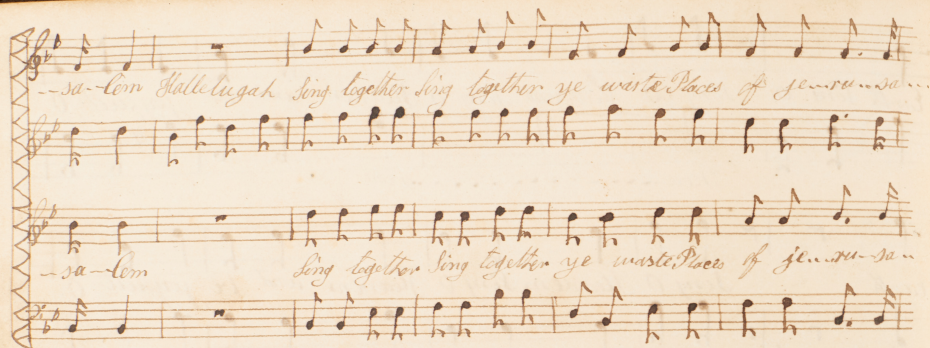 --sa--lem Hallelugah Sing together Sing together ye waste Places of je--ru--sa--
--sa--lem Sing together Sing together ye waste Places of je--ru--sa--